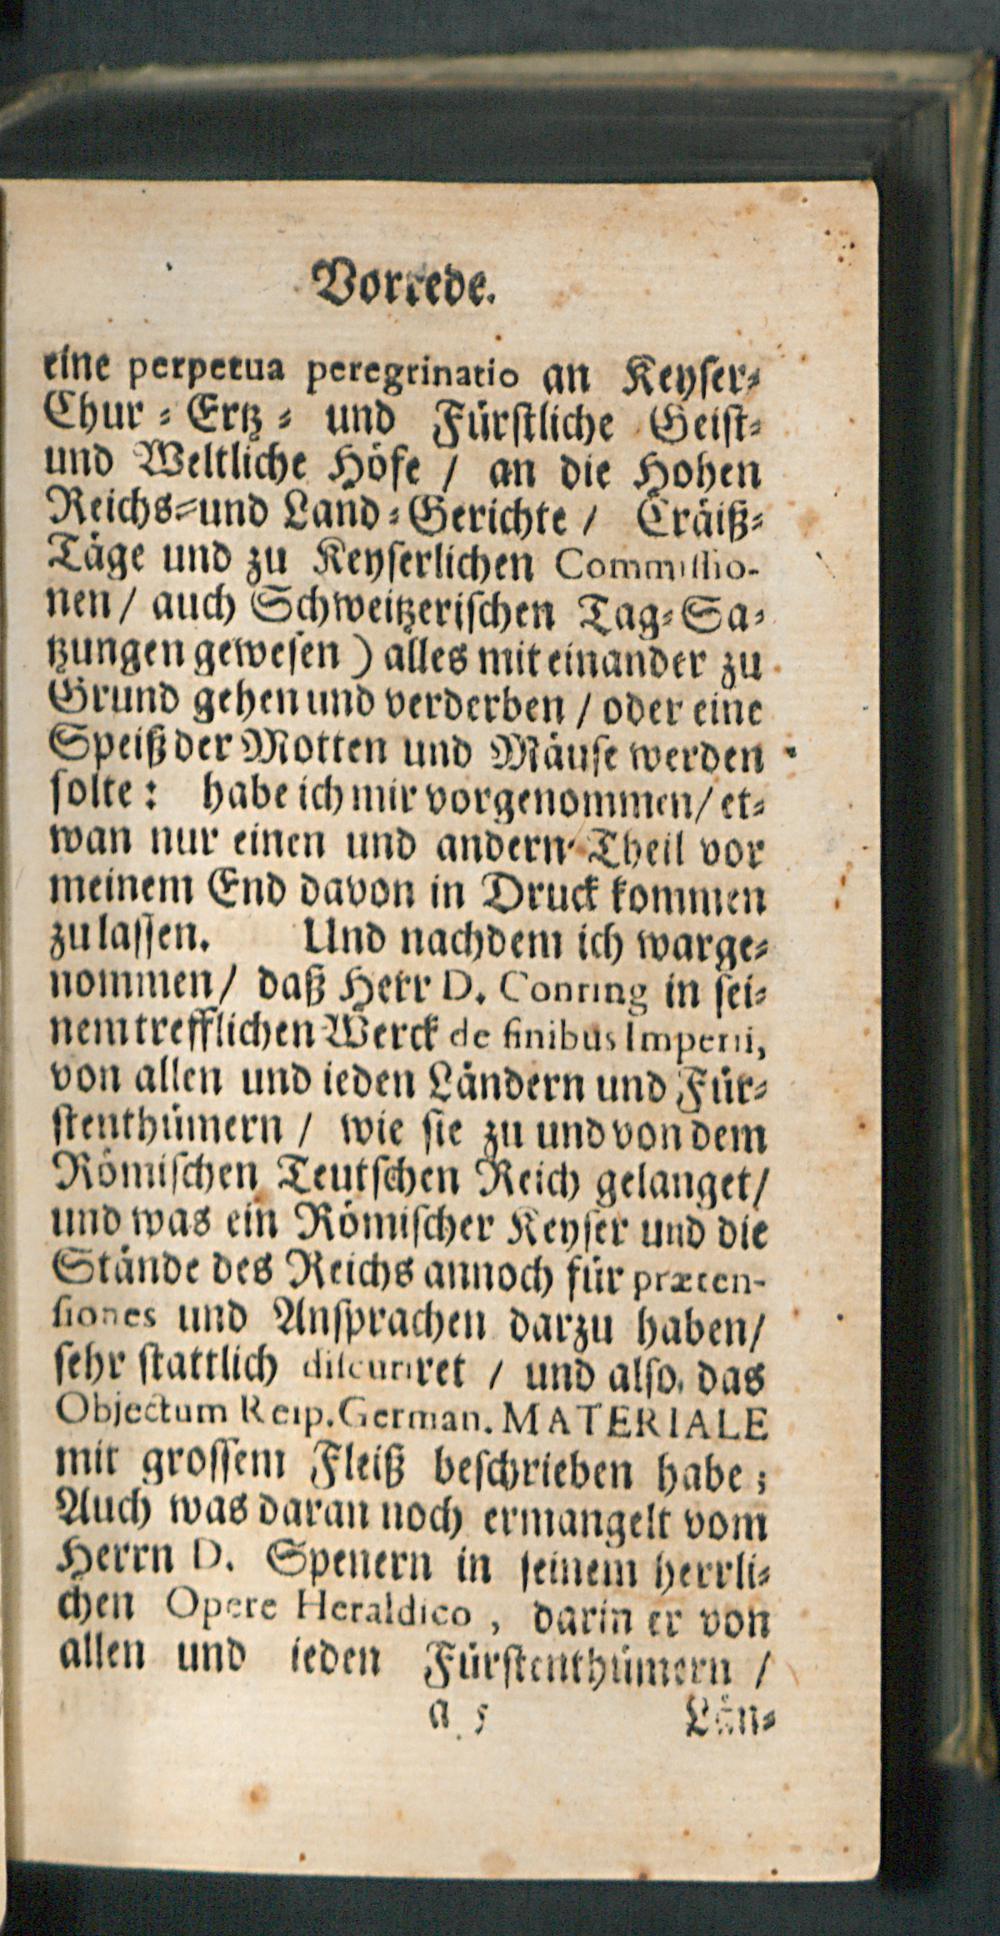 Vorrede.
eine perpetua peregrinatio an Keyser-
Chur - Ertz - und Fürstliche Geist-
und Weltliche Höfe / an die Hohen
Reichs-und Land-Gerichte / Cräiß-
Täge und zu Keyserlichen Commissio-
nen / auch Schweitzerischen Tag-Sa-
tzungen gewesen ) alles mit einander zu
Grund gehen und verderben / oder eine
Speiß der Motten und Mäuse werden
solte: habe ich mir vorgenommen / et-
wan nur einen und andern Theil vor
meinem End davon in Druck kommen
zu lassen. Und nachdem ich warge-
nommen / daß Herr D. Conring in sei-
nem trefflichen Werck de finibus Imperii,
von allen und ieden Ländern und Für-
stenthümern / wie sie zu und von dem
Römischen Teutschen Reich gelanget /
und was ein Römischer Keyser und die
Stände des Reichs annoch für præten-
siones und Ansprachen darzu haben /
sehr stattlich discuriret / und also das
Objectum Reip. German. MATERIALE
mit grossem Fleiß beschrieben habe ;
Auch was daran noch ermangelt vom
Herrn D. Spenern in seinem herrli-
chen Opere Heraldico , darin er von
allen und ieden Fürstenthümern /
a 5 Län-